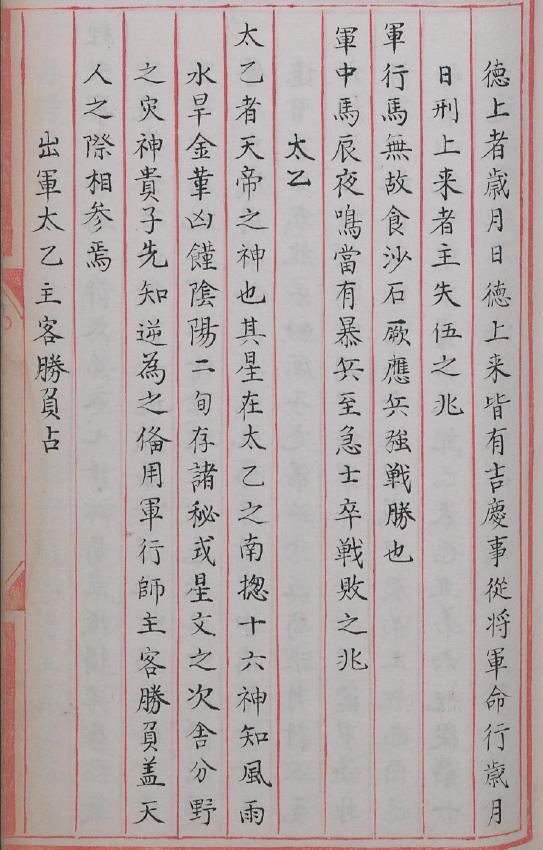 德上者歲月日德上来皆有吉慶事從将軍命行歲月
日刑上来者主失伍之兆
軍行馬無故食沙石厥應兵強戦勝也
軍中馬辰夜鳴當有暴兵至急士卒戦敗之兆
太乙
太乙者天帝之神也其星在太乙之南揔十六神知風雨
水旱金革凶饉陰陽二旬存諸秘或星文之次舎分野
之灾神貴子先知逆為之俻用軍行師主客勝負盖天
人之際相参焉
出軍太乙主客勝負占